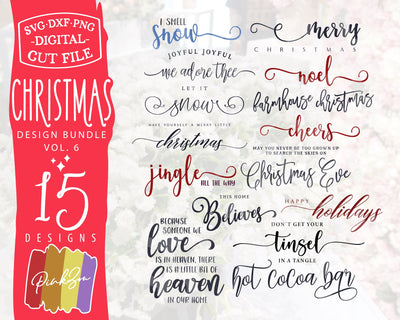 SVG·DXF·PNG
-DIGITAL-
CUT FILE
CHRISTMAS
DESIGN BUNDLE
VOL. 6
15
DESIGNS
PinkZou
I SMELL
snow
JOYFUL JOYFUL
we adore thee
LET IT
snow
HAVE YOURSELF A MERRY LITTLE
christmas
jingle
ALL THE WAY
BECAUSE
SOMEONE WE
love
IS IN HEAVEN, THERE
IS A LITTLE BIT OF
heaven
IN OUR HOME
merry
CHRISTMAS
noel
farmhouse christmas
cheers
MAY YOU NEVER BE TOO GROWN UP
TO SEARCH THE SKIES ON
Christmas Eve
THIS HOME
Believes
HAPPY
holidays
DON'T GET YOUR
tinsel
IN A TANGLE
hot cocoa bar